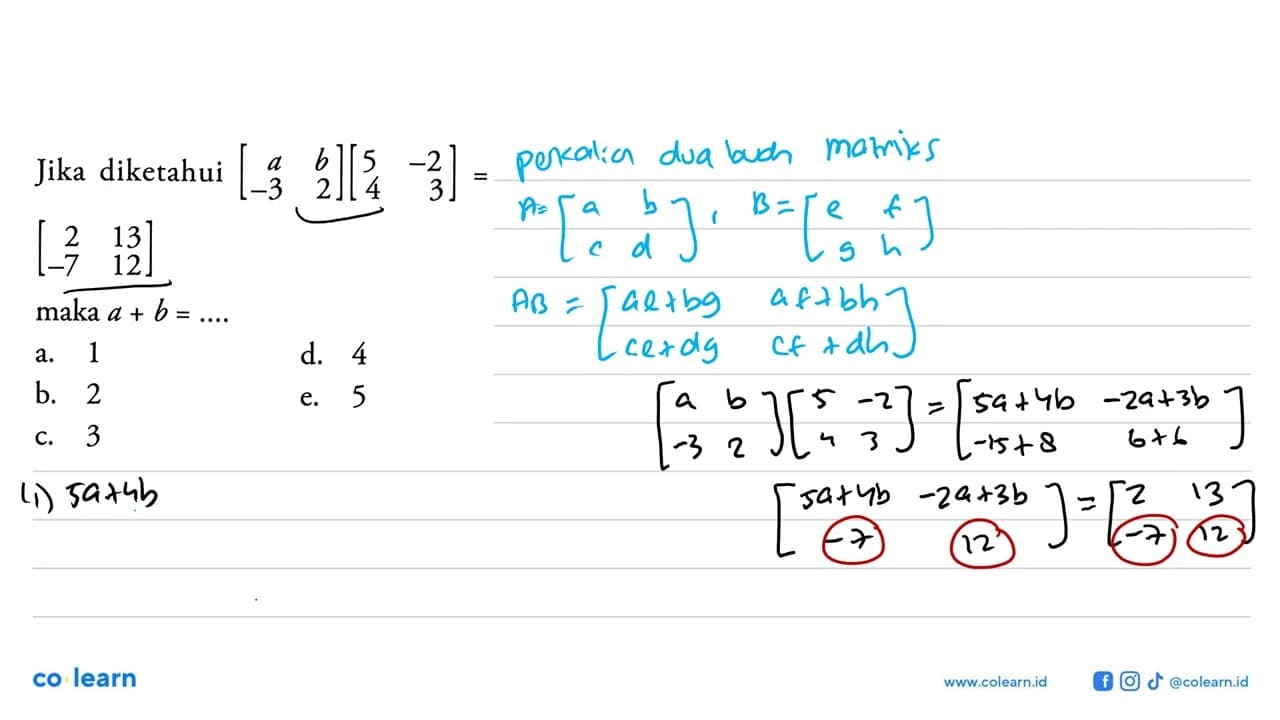 Jika diketahui [a b
-3 2][5 -2
4 3] =
[2 13
-7 12]
maka a + b = ....
a. 1
b. 2
c. 3
d. 4
e. 5
perkalian dua buah matriks
A= [a b
c d] , B = [e f
g h]
AB = [ae+bg af+bh
ce+dg cf+dh]
[a b
-3 2][5 -2
4 3] = [5a+4b -2a+3b
-15+8 6+6]
[5a+4b -2a+3b
-7 12] = [2 13
-7 12]
(1) 5a+4b
co learn
www.colearn.id
@colearn.id